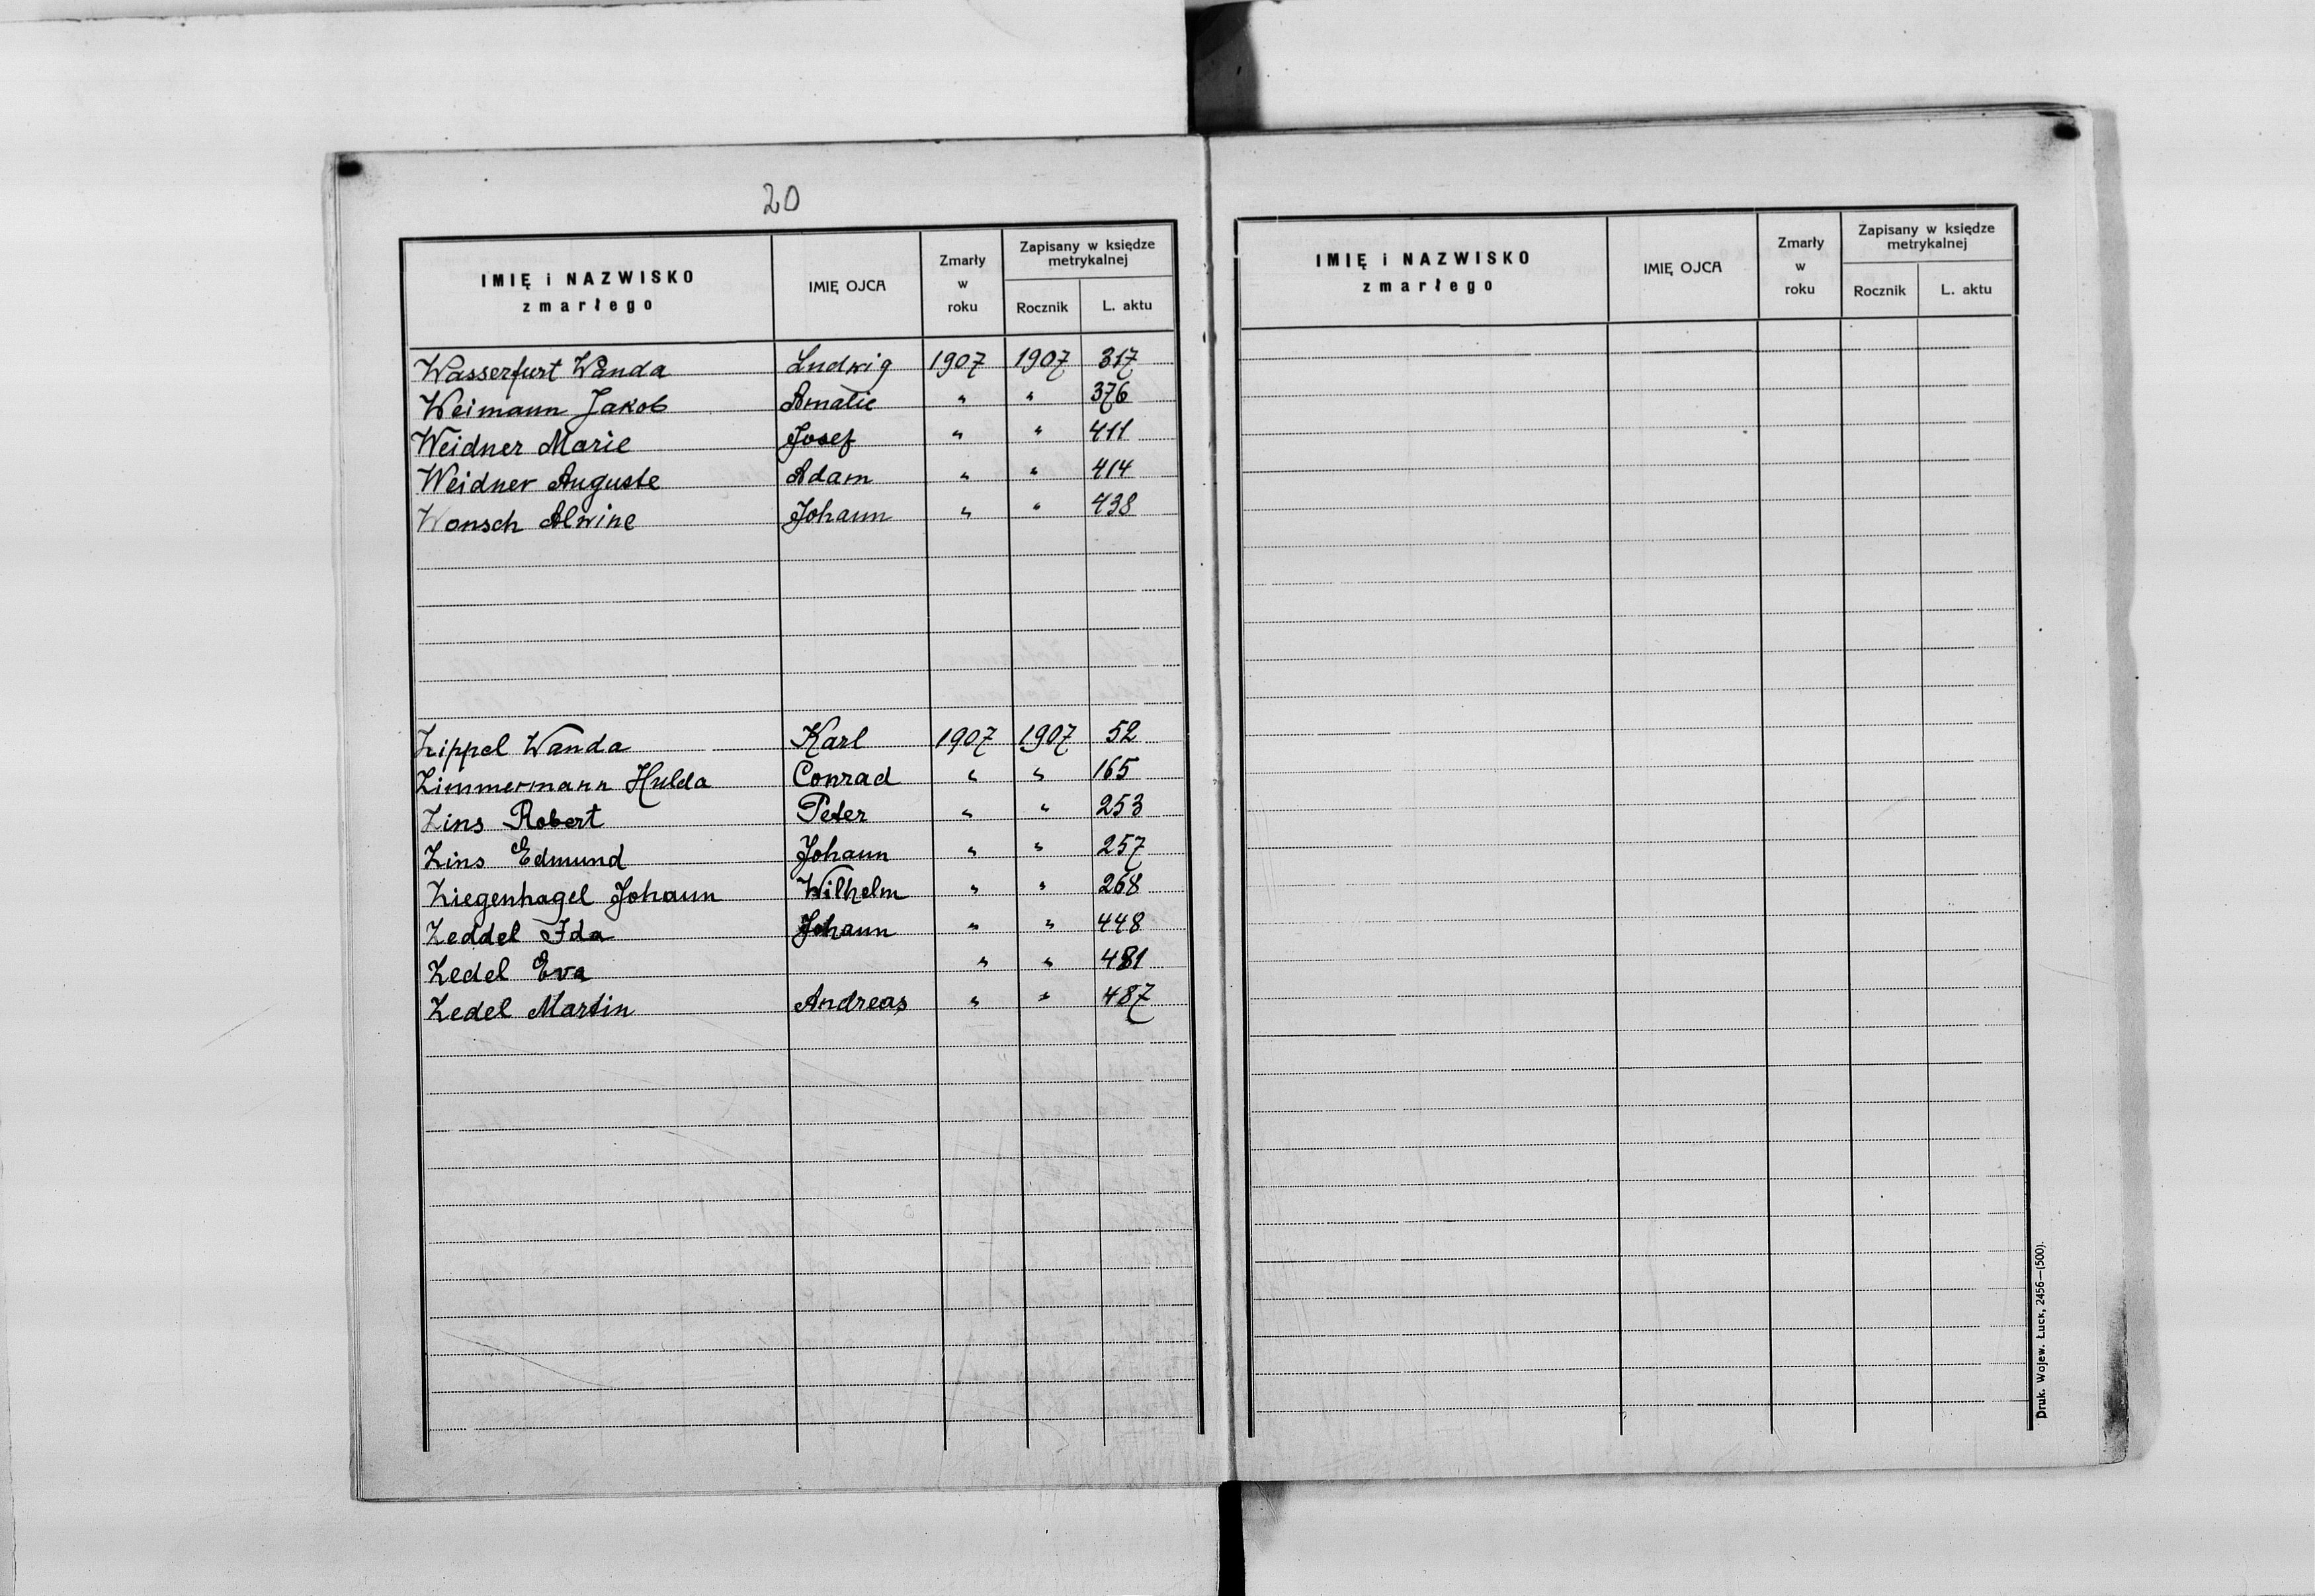 20
IMIĘ i NAZWISKO zmarłego IMIĘ OJCA Zmarły w roku Zapisany w księdze metrykalnej Rocznik L. aktu
Wasserfurt Wanda Ludwig 1907 1907 317
Weimann Jakob Amalie " " 376
Weidner Marie Josef " " 411
Weidner Auguste Adam " " 414
Wonsch Alwine Johann " " 438
Zippel Wanda Karl 1907 1907 52
Zimmermann Hulda Conrad " " 165
Zins Robert Peter " " 253
Zins Edmund Johann " " 257
Ziegenhagel Johann Wilhelm " " 268
Zeddel Ida Johann " " 448
Zedel Eva " " 481
Zedel Martin Andreas " " 487
IMIĘ i NAZWISKO zmarłego IMIĘ OJCA Zmarły w roku Zapisany w księdze metrykalnej Rocznik L. aktu
Druk. Wojew. Łuck, 2456—(500).